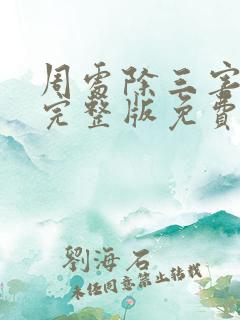 周處除三害
完整版免費
劉海石
未経同意禁止转载